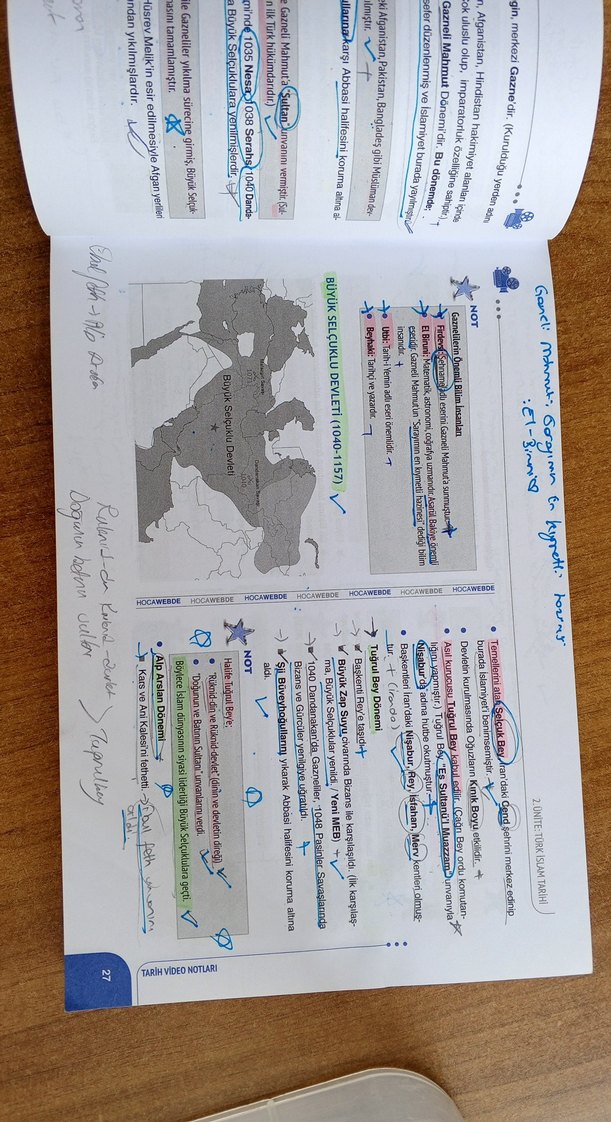 gin, merkezi Gazne'dir. (Kurulduğu yerden adını
n, Afganistan, Hindistan hakimiyet alanları içinde
ok uluslu olup, imparatorluk özelliğine sahiptir.)
Gazneli Mahmut Dönemi'dir. Bu dönemde;
sefer düzenlenmiş ve İslamiyet burada yayılmıştır.
eki Afganistan, Pakistan, Bangladeş gibi Müslüman dev-
ılmıştır.
ullarına karşı Abbasi halifesini koruma altına al-
e Gazneli Mahmut'a "Sultan" unvanını vermiştir. (Sul-
n ilk Türk hükümdarıdır.)
1035 Nesa, 1038 Serahs, 1040 Danda-
a Büyük Selçuklulara yenilmişlerdir.
ile Gazneliler yıkılma sürecine girmiş, Büyük Selçuk
masını tamamlamıştır.
Hüsrev Melik'in esir edilmesiyle Afgan yerlileri
ından yıkılmışlardır.
2. ÜNİTE: TÜRK İSLAM TARİHİ
Gazneli Mahmut: Sarayımın En kıymetli hazinesi
: El-Biruni
NOT
Gaznelilerin Önemli Bilim İnsanları
Firdevsi: Şehname adlı eserini Gazneli Mahmut'a sunmuştur.
El Biruni: Matematik, astronomi, coğrafya uzmanıdır. Asarül Bakiye önemli
eseridir. Gazneli Mahmut'un "Sarayımın en kıymetli hazinesi" dediği bilim
insanıdır.
Utbi: Tarih-i Yemin adlı eseri önemlidir.
Beyhaki: Tarihçi ve yazardır.
BÜYÜK SELÇUKLU DEVLETİ (1040-1157)
Büyük Selçuklu Devleti
HOCAWEBDE HOCAWEBDE HOCAWEBDE HOCAWEBDE HOCAWEBDE HOCAWEBDE HOCAWEBDE
Temellerini atan Selçuk Bey, İran'daki Cend şehrini merkez edinip
burada İslamiyet'i benimsemiştir.
Devletin kurulmasında Oğuzların Kınık Boyu etkilidir.
Asıl kurucusu Tuğrul Bey kabul edilir. (Çağrı Bey ordu komutan-
lığını yapmıştır.) Tuğrul Bey, "Es Sultanü'l Muazzam" unvanıyla
Nişabur'da adına hutbe okutmuştur.
Başkentleri İran'daki Nişabur, Rey, İsfahan, Merv kentleri olmuş-
tur.
Tuğrul Bey Dönemi
Başkenti Rey'e taşıdı.
Büyük Zap Suyu civarında Bizans ile karşılaşıldı. (İlk karşılaş-
ma, Büyük Selçuklular yenildi. / Yeni MEB)
1040 Dandanakan'da Gazneliler, 1048 Pasinler Savaşlarında
Bizans ve Gürcüler yenilgiye uğratıldı.
Şii Büveyhoğullarını yıkarak Abbâsi halifesini koruma altına
aldı.
NOT
Halife Tuğrul Bey'e;
"Rükned-din ve Rükned-devlet" (dinin ve devletin direği)
"Doğunun ve Batının Sultanı" unvanlarını verdi.
Böylece İslam dünyasının siyasi liderliği Büyük Selçuklulara geçti.
Alp Arslan Dönemi
Kars ve Ani Kalesi'ni fethetti.
Doğunun batının sultanı
TARİH VİDEO NOTLARI
27